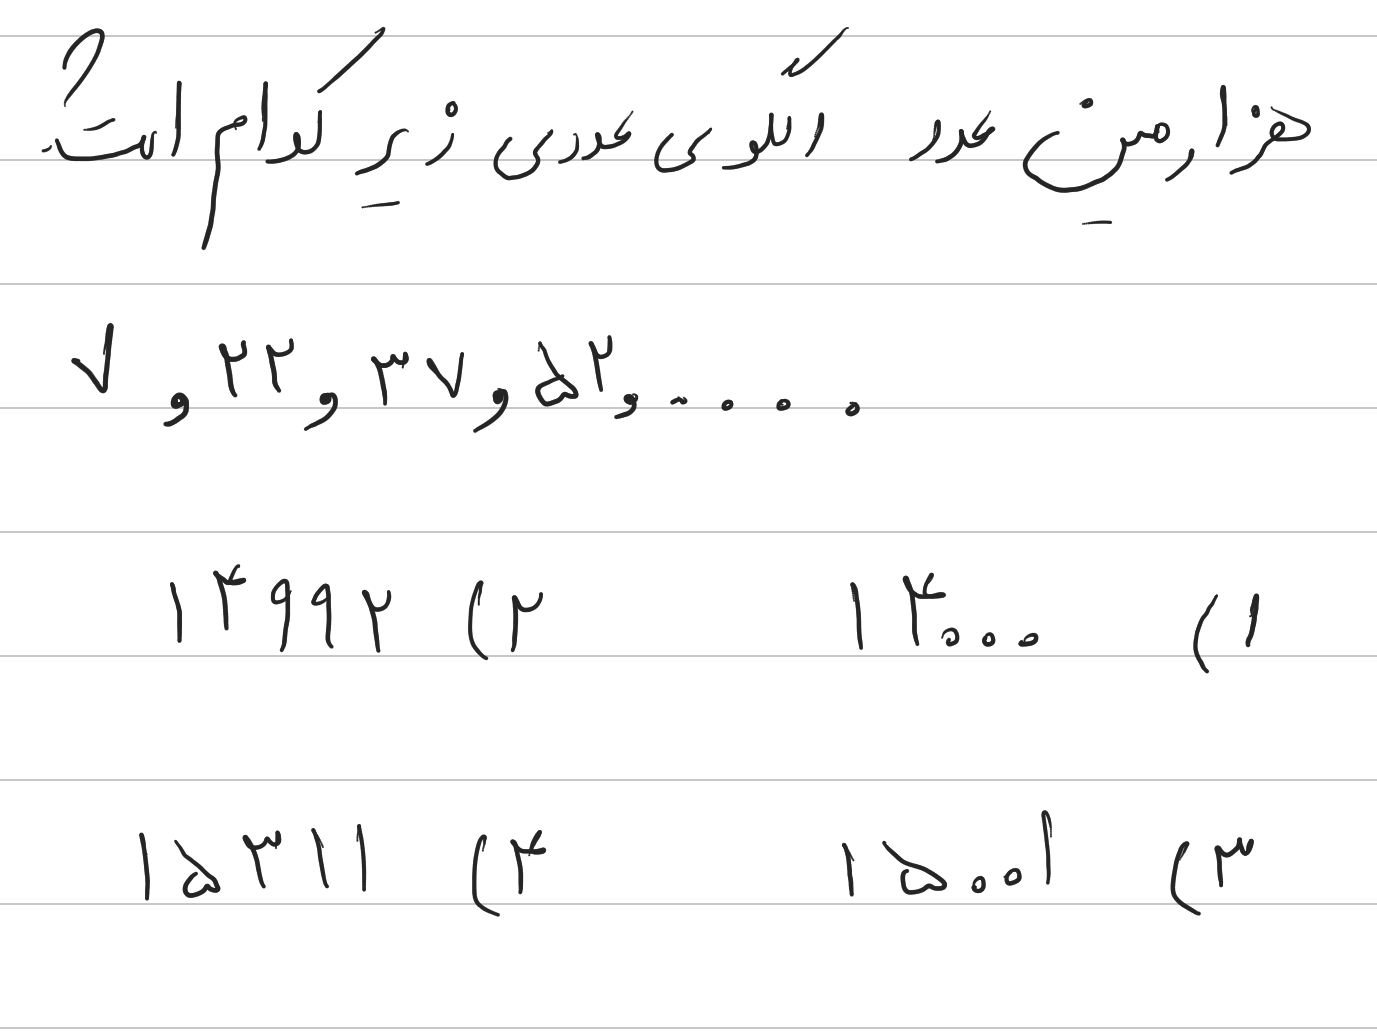 هزارمین عدد الگوی عددی زیر کدام است؟
۷ و ۲۲ و ۳۷ و ۵۲ و ....
۱) ۱۴۰۰۰ ۲) ۱۴۹۹۲
۳) ۱۵۰۰۱ ۴) ۱۵۳۱۱